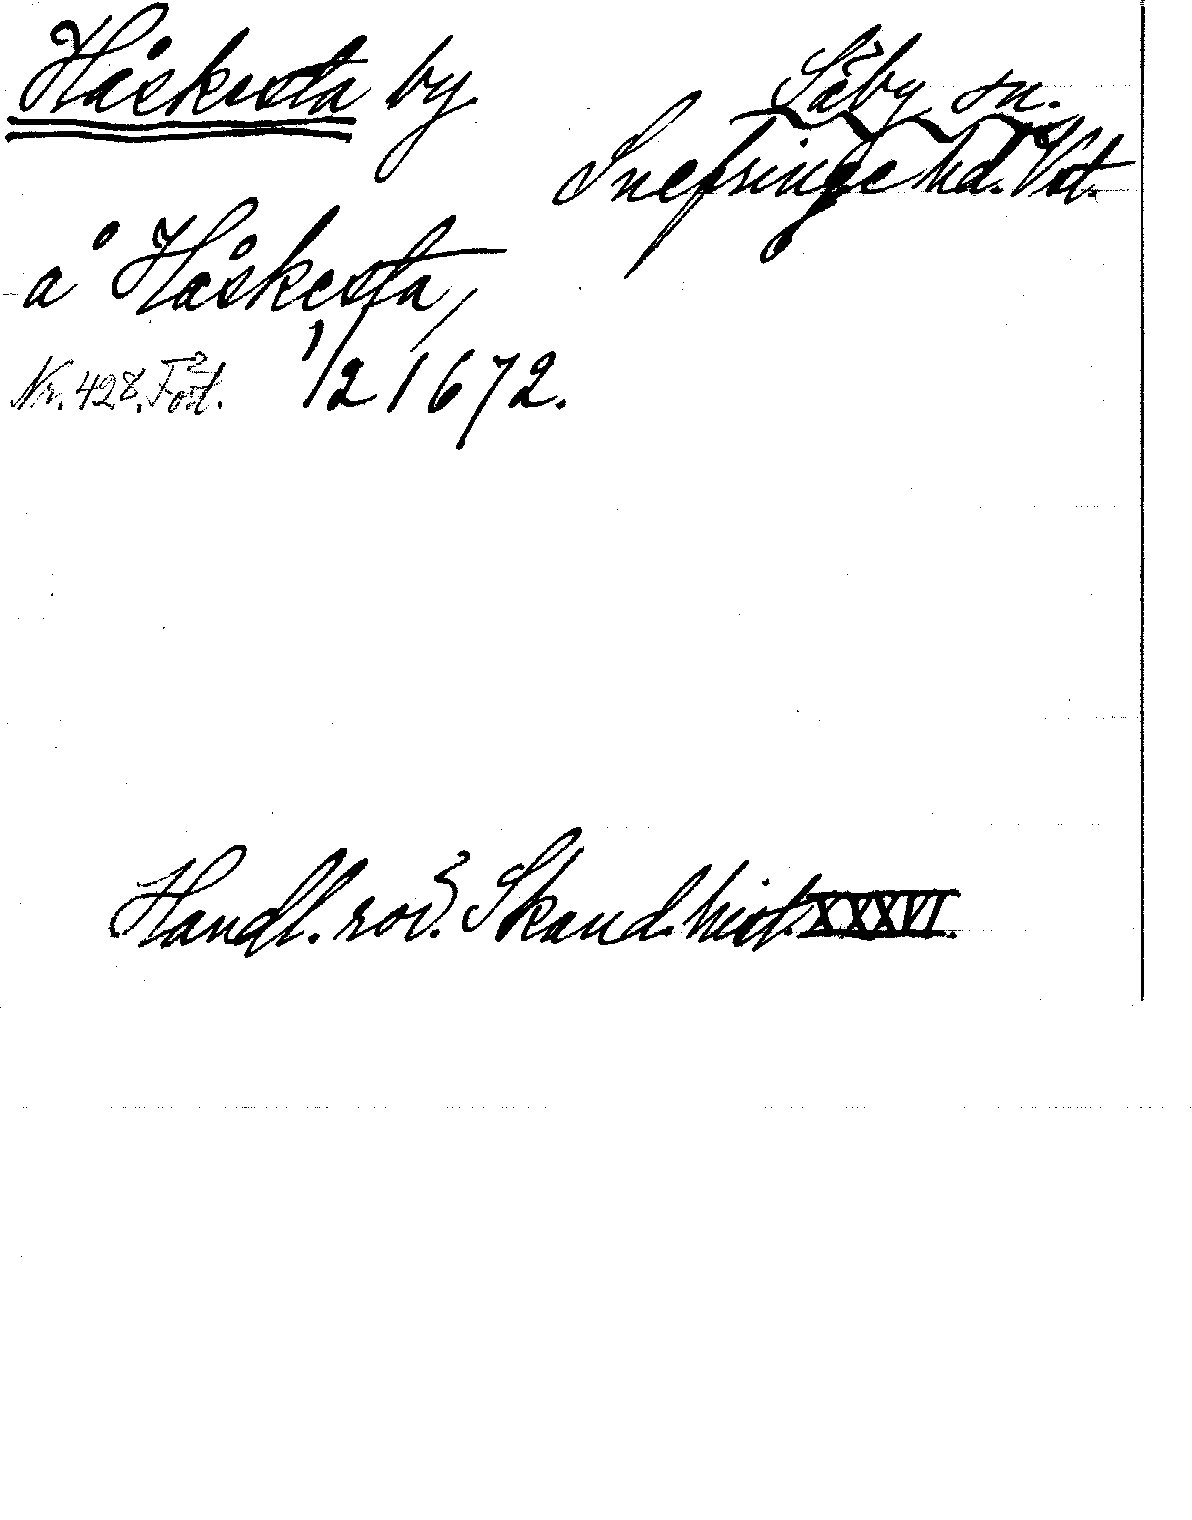 Håskesta by
Säby sn.
Snefringe hd. Vst.
å Håskesta,
Nr. 428. 1/2 1672.
Handl. rör. Skand. hist. XXXVI.